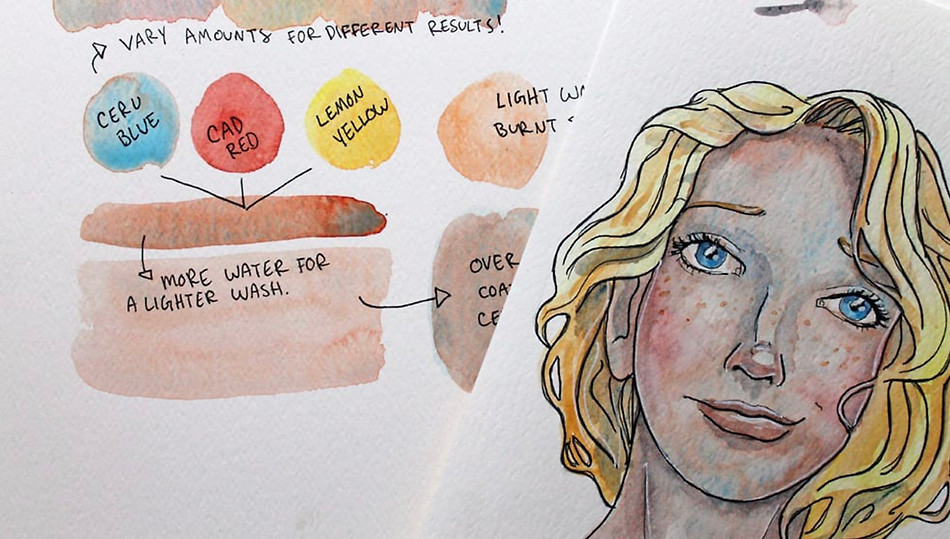 VARY AMOUNTS FOR DIFFERENT RESULTS!
CERU
BLUE
CAD
RED
LEMON
YELLOW
LIGHT
BURNT
MORE WATER FOR
A LIGHTER WASH.
OVER